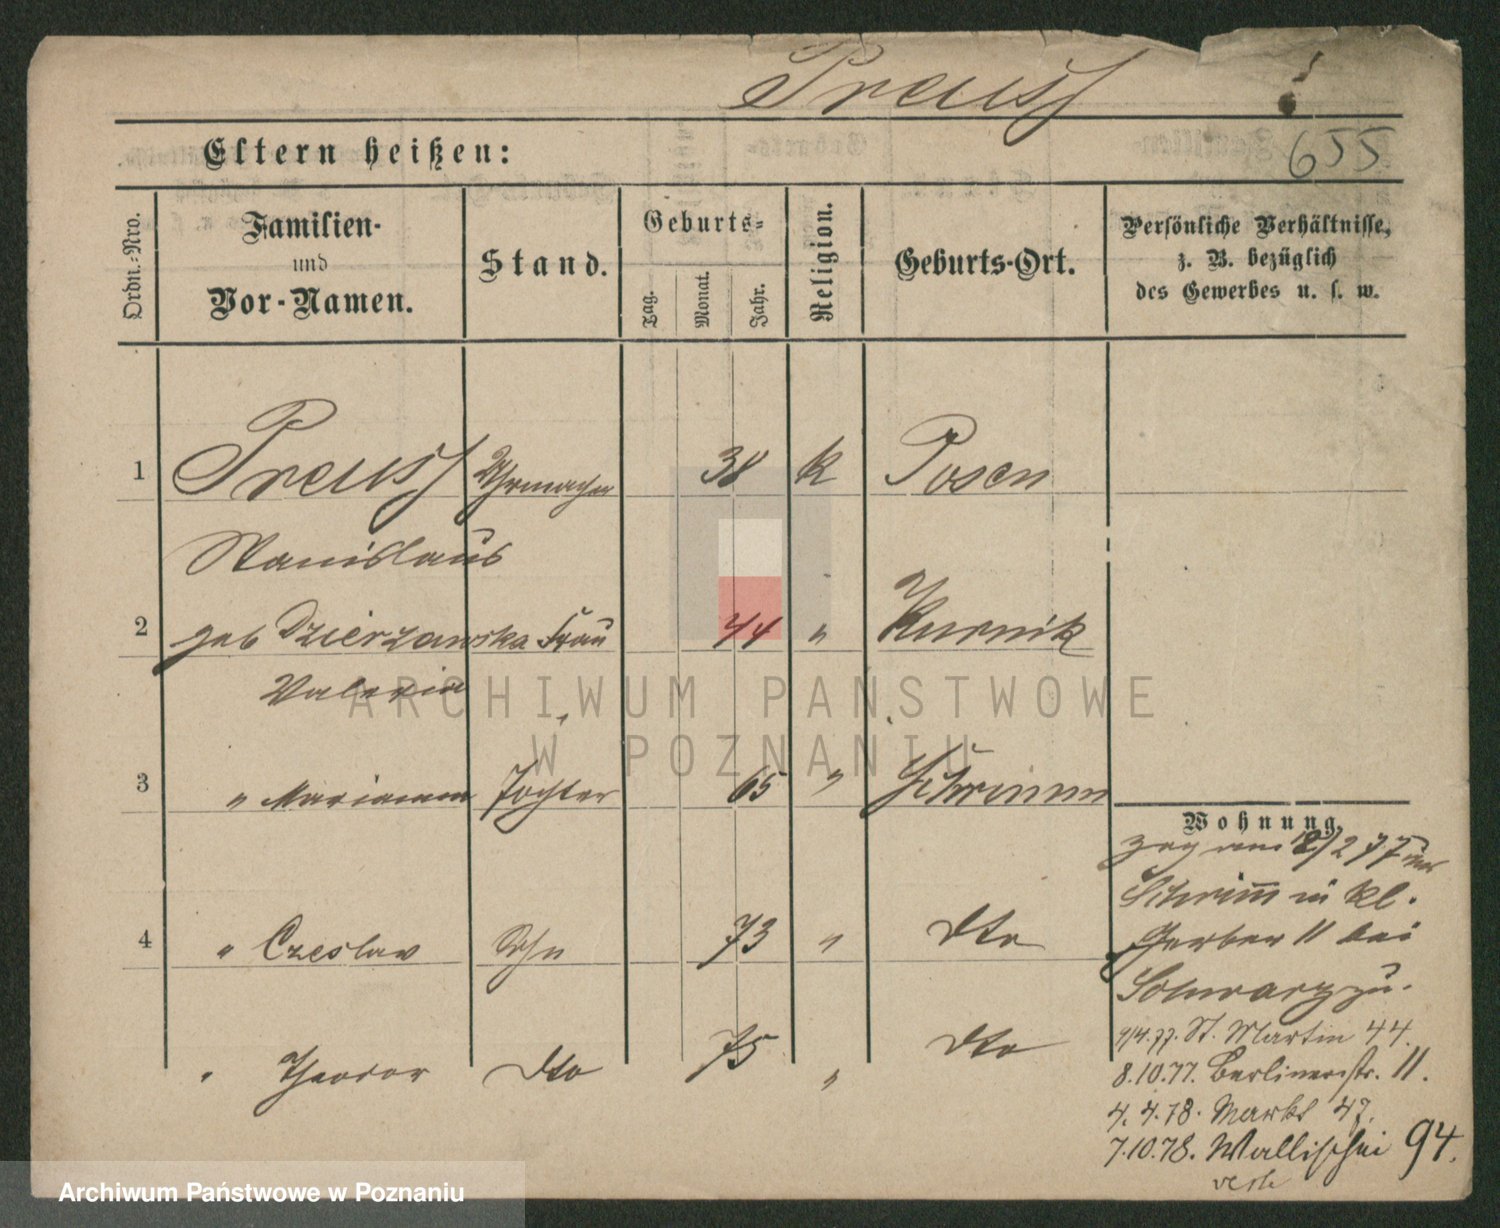 Preuss
655
Eltern heißen:
Ordn.-Nro.
Familien-
und
Vor-Namen.
Stand.
Geburts-
Tag.
Monat.
Jahr.
Religion.
Geburts-Ort.
Persönliche Verhältnisse,
z. B. bezüglich
des Gewerbes u. s. w.
1 Preuss Uhrmacher 38 k Posen
Stanislaus
2 geb Dzierzawska Frau 44 " Kurnik
Valeria
3 " Marianna Tochter 65 " Schrimm
Wohnung.
zog am 12/2 77 aus
Schrimm in kl.
4 " Czeslaw Sohn 73 " dto
Gerber 11 bei
Schwarz zu.
" Theodor dto 75 " dto
9/4.77. St. Martin 44.
8.10.77. Berlinerstr. 11.
4.4.78. Markt 47.
7.10.78. Wallischei 94.
ARCHIWUM PAŃSTWOWE
W POZNANIU
Archiwum Państwowe w Poznaniu